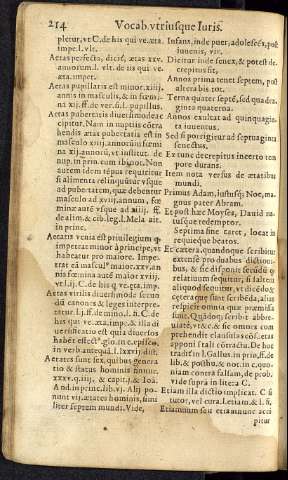 214 Vocab. vtriusque Iuris.
pletur, vt C. de his qui ve. æta.
impe. l. vlt.
Aetas perfecta, dicit, ætas xxv.
annorum. l. vlt. de iis qui ve.
æta. impet.
Aetas pupillaris est minor. xiiij.
annis in masculis, & in fœmi-
na xij. ff. de ver. ś. l. pupillus.
Aetas pubertatis diuersimode ac
cipitur. Nam in nuptiis côtra
hendis ætas pubertatis est in
masculo xiiij. annorū in fœmi
na xij. annorū, vt institut. de
nup. in prin. cum ibi not. Non
autem idem tēpus requiritur
si alimenta relinquātur vsque
ad pubertatem, quæ debentur
masculo ad xviij. annum, fœ
minæ autē vsque ad xiiij. ff.
de alim. & cib. leg. l. Mela. ait
in princ.
Aetatis venia est priuilegium
impetrat minor à principe, vt
habeatur pro maiore. Impe-
trat eā mascul' maior. xx. an
nis fœmina autē maior xviij.
vt l. ij. C. de his q ve. æta. imp.
Aetas virilis diuersimode secun
dū canones & leges interpre-
tatur. l. j. ff. de mino. l. fi. C. de
his qui ve. æta. imp. & illa di
uersificatio est quia diuersos
Aetates sunt sex, quibus genera
tio & status hominis
xxxv. q. iiij. & capit. j. & Io.
And. in prin. lib. vj. Alij po-
nunt vij. ætates hominis, simi
liter septem mundi. Vnde,
Infans, inde puer, adolescēs, pòst
iuuenis, vir.
Dicitur inde senex, & pòst de-
crepitus sit.
Annos prima tenet septem, post
altera bis tot.
Terna quater septē, sed quadra-
ginta quaterna.
Annos exultat ad quinquagin-
ta iuuentus.
Sed si porrigitur ad septuaginta
senectus.
Ex tunc decrepitus incerto tem
pore durans.
Item nota versus de ætatibus
mundi.
Primus Adam, iustusq; Noe, ma-
gnus pater Abram.
Et post hæc Moyses, Dauid na-
tusque redemptor.
Septima fine caret, locat in
requieque beatos.
Etcætera, quandoque scribitur
extensè pro duabus dictioni-
bus, & sic disponit secūdū q
relatum sequitur, si saltem
aliquod sequitur, vt dicēdo &
cæteraque sunt scribēda, alias
respectu omnia quæ præmissa
sunt. Quādoq; scribit abbre-
uiatè, vt &c. & sic omnes com
prehendit clausulas cōs. etas
apponi tali cōtractu. De hoc
tradit in l. Gallus. in prin. ff. de
lib. & posthu. & not. in c. quo-
niam contra falsam, de prob.
vide supra in litera C.
Etiam illa dictio implicat. C. si
tutor, vel cura. l. etiam. & l. fi.
Etiamnum seu etiamnunc acci
pitur